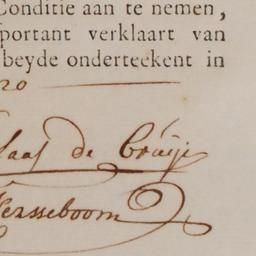 Conditie aan te nemen,
portant verklaart van
beyde onderteekent in
20
laas de Bruijn
Kersseboom